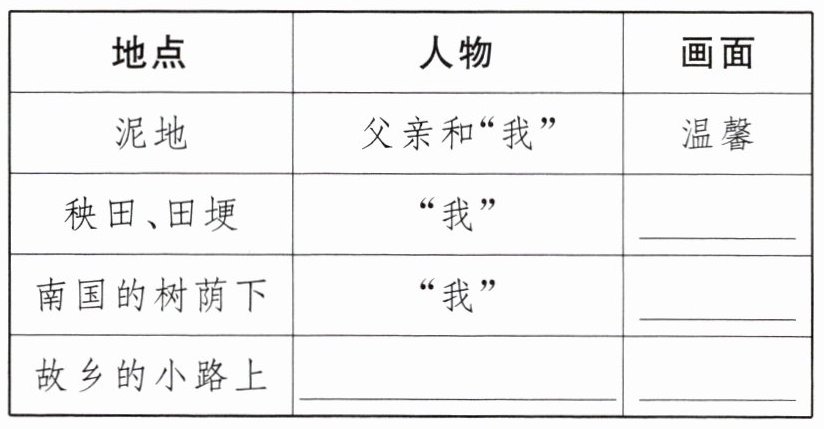 地点 人物 画面
泥地 父亲和“我” 温馨
秧田、田埂 “我”
南国的树荫下 “我”
故乡的小路上